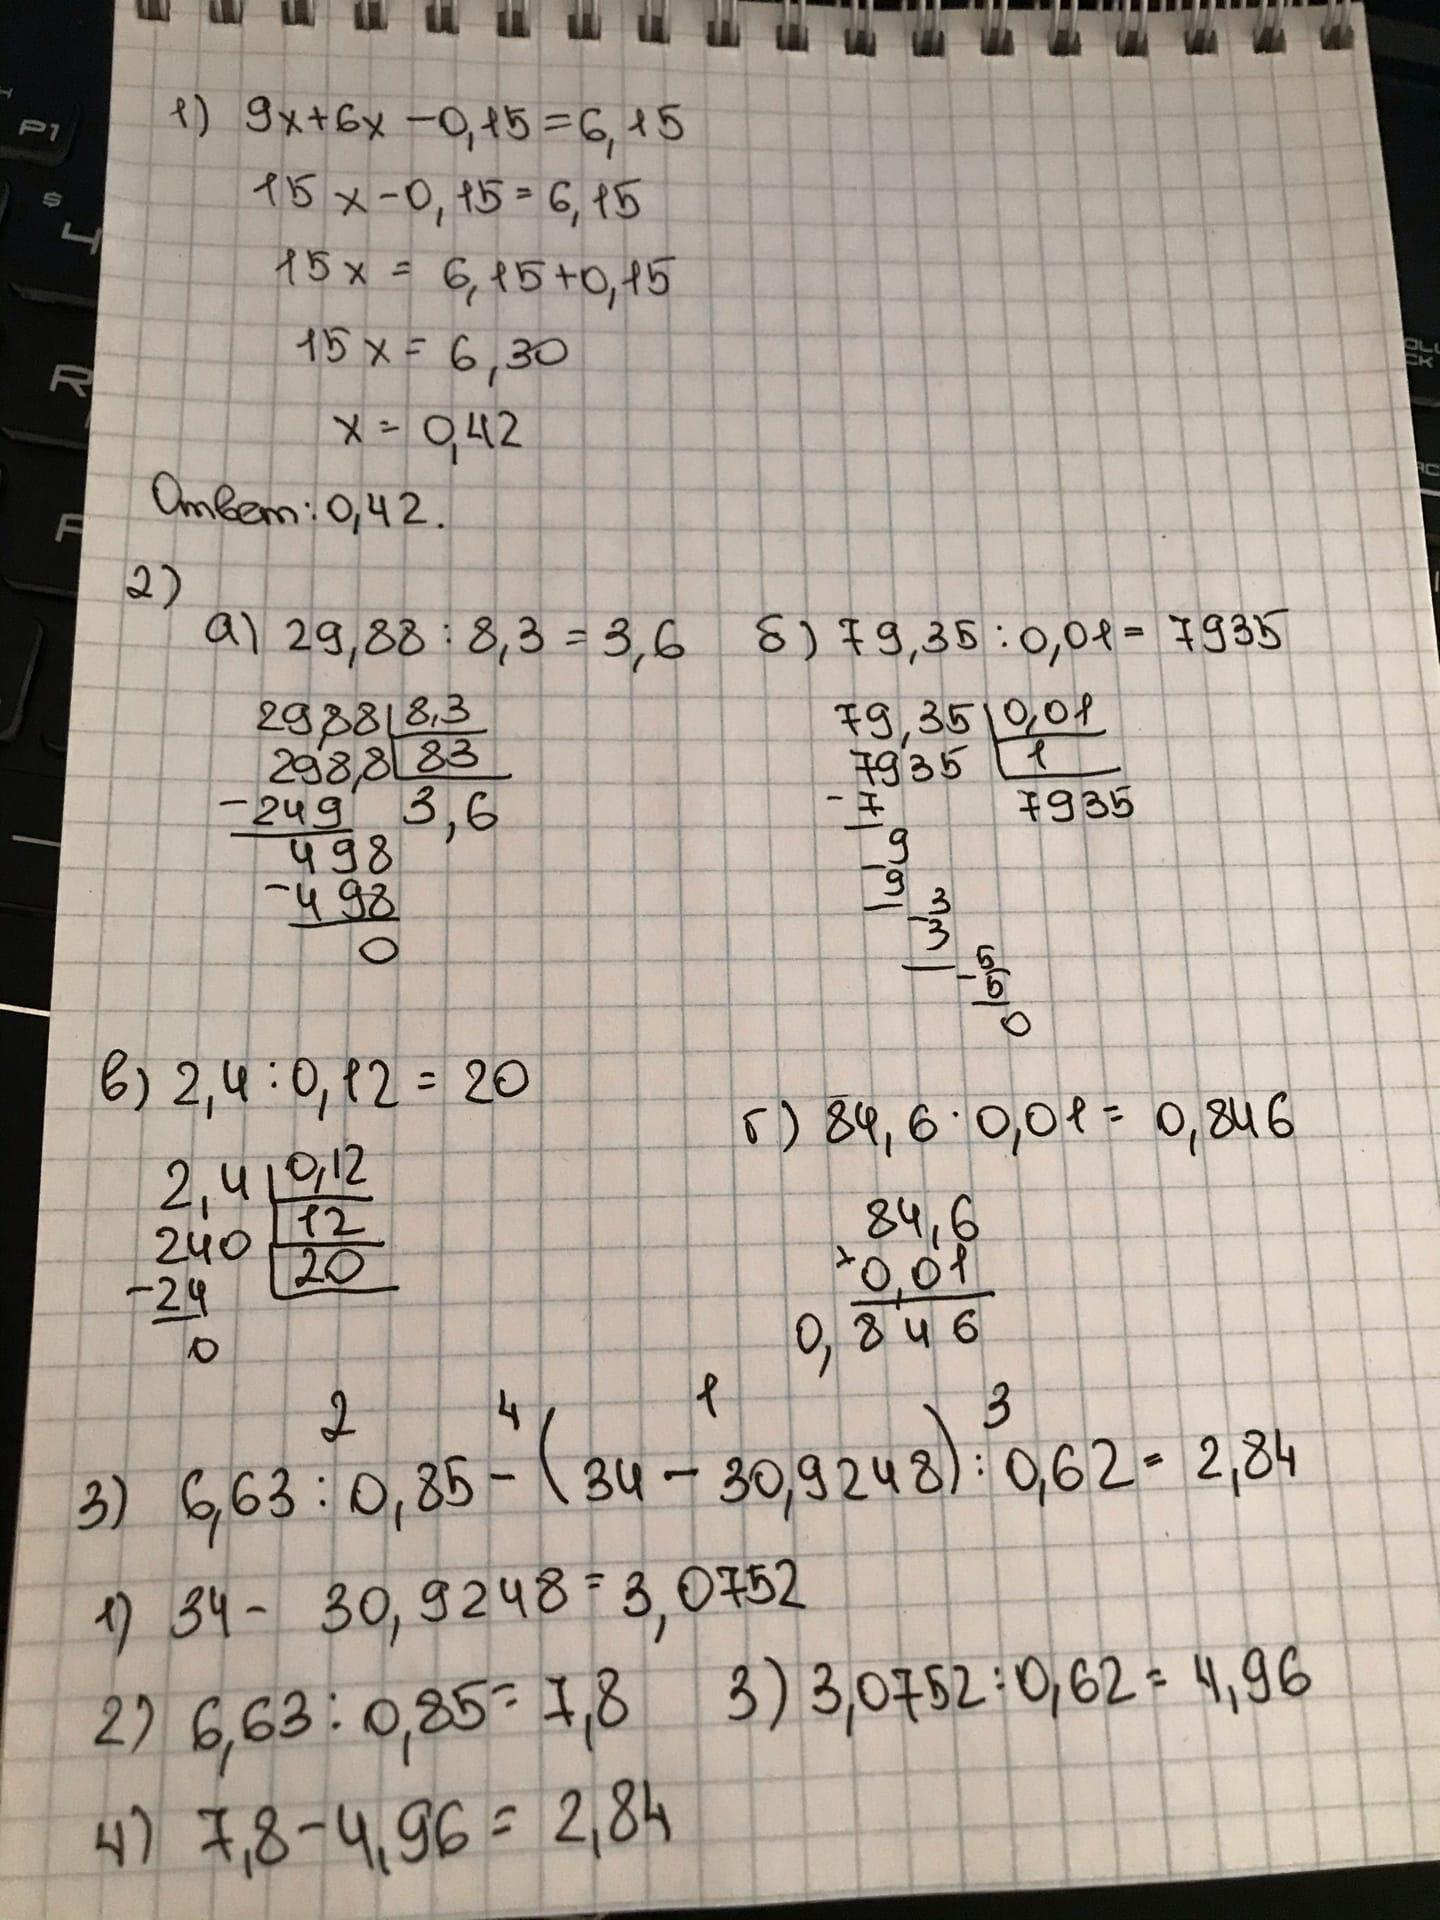 1) 9x+6x-0,15=6,15
15x-0,15=6,15
15x = 6,15+0,15
15x = 6,30
x = 0,42
Ответ: 0,42.
2)
а) 29,88:8,3=3,6
29,88 8,3
298,8 83
-249 3,6
498
-498
0
б) 79,35:0,01=7935
79,35 0,01
7935 1
-7 7935
9
-9
3
-3
5
-5
0
в) 2,4:0,12=20
2,4 0,12
240 12
-24 20
0
г) 84,6·0,01=0,846
84,6
×0,01
0,846
2 4 1 3
3) 6,63:0,85-(34-30,9248):0,62=2,84
1) 34-30,9248=3,0752
2) 6,63:0,85=7,8 3) 3,0752:0,62=4,96
4) 7,8-4,96=2,84
P1
$
4
R
F